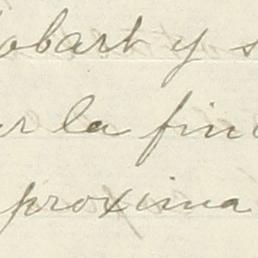 obart y s
r la fin
proxima